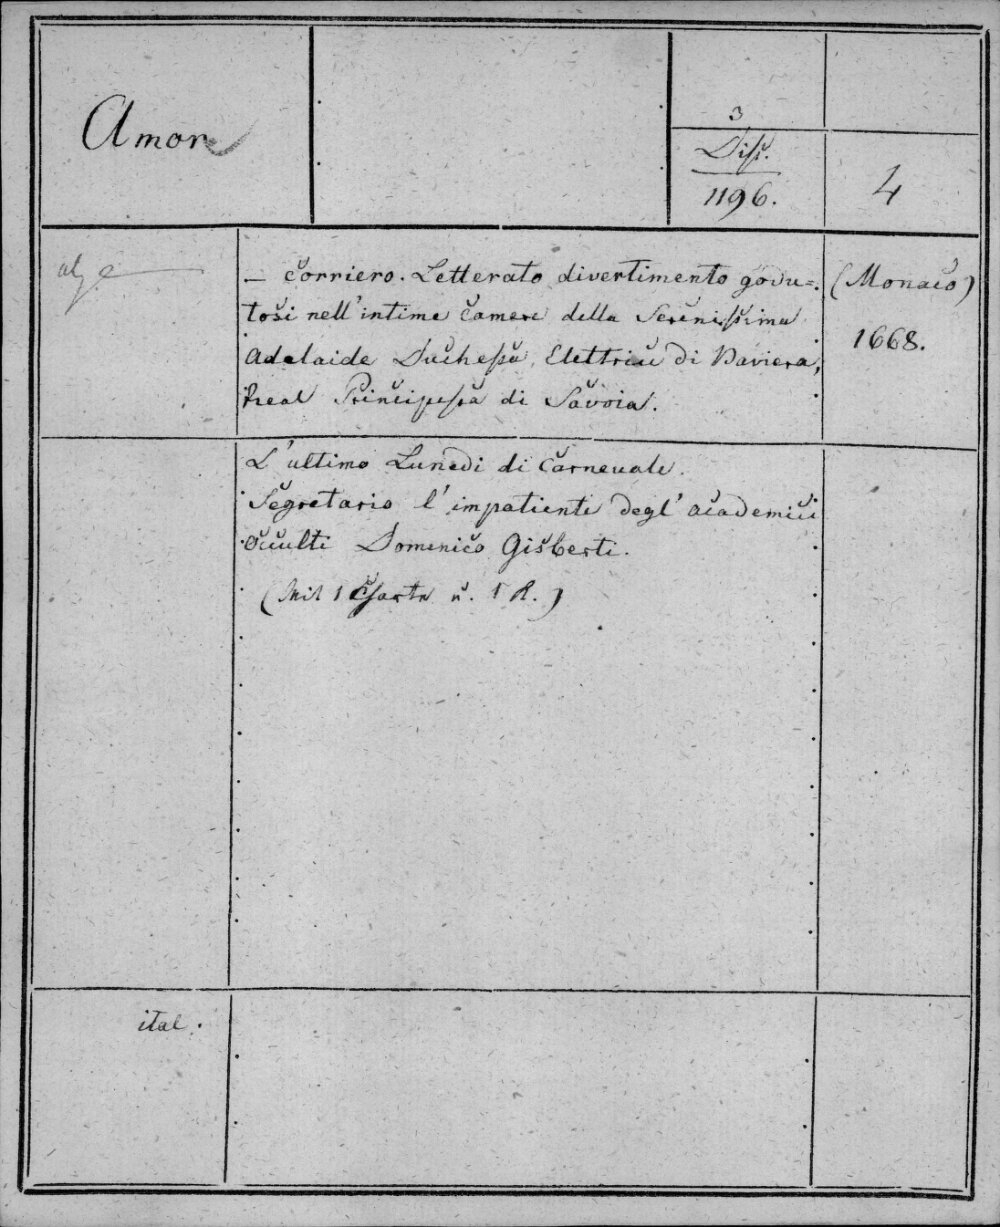 Amore
3
Diss.
1196.
4
— Corriero. Letterato divertimento godu=
tosi nell'intime Camere della Serenissima
Adelaide Duchessa, Elettrice di Baviera,
Real Principessa di Savoia.
(Monaco)
1668.
L'ultimo Lunedi di Carnevale.
Segretario l'impatiente degl'academici
occulti Domenico Gisberti.
(Mit 1 Charte u. 1 R.)
ital.